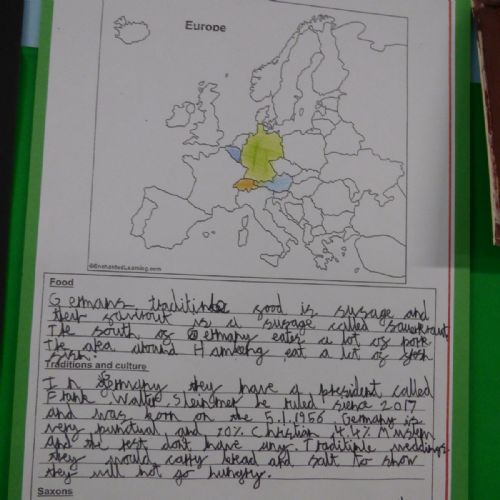 Europe
©EnchantedLearning.com
Food
Germans traditinal food is susage and
their favriout is a susage called sauerkraut.
The south of Germany eates a lot of pork.
The area around Hamburg eat a lot of fesh
fish.
Traditions and culture
In Germany they have a president called
Frank Walter Steinmer he ruled sience 2017
and was born on the 5.1.1956 Germany is
very punctual and 70% Christian 4.4% Muslem
And the rest dont have eny. Traditinle weddings
they would carry bread and salt to show
they will not go hungry.
Saxons